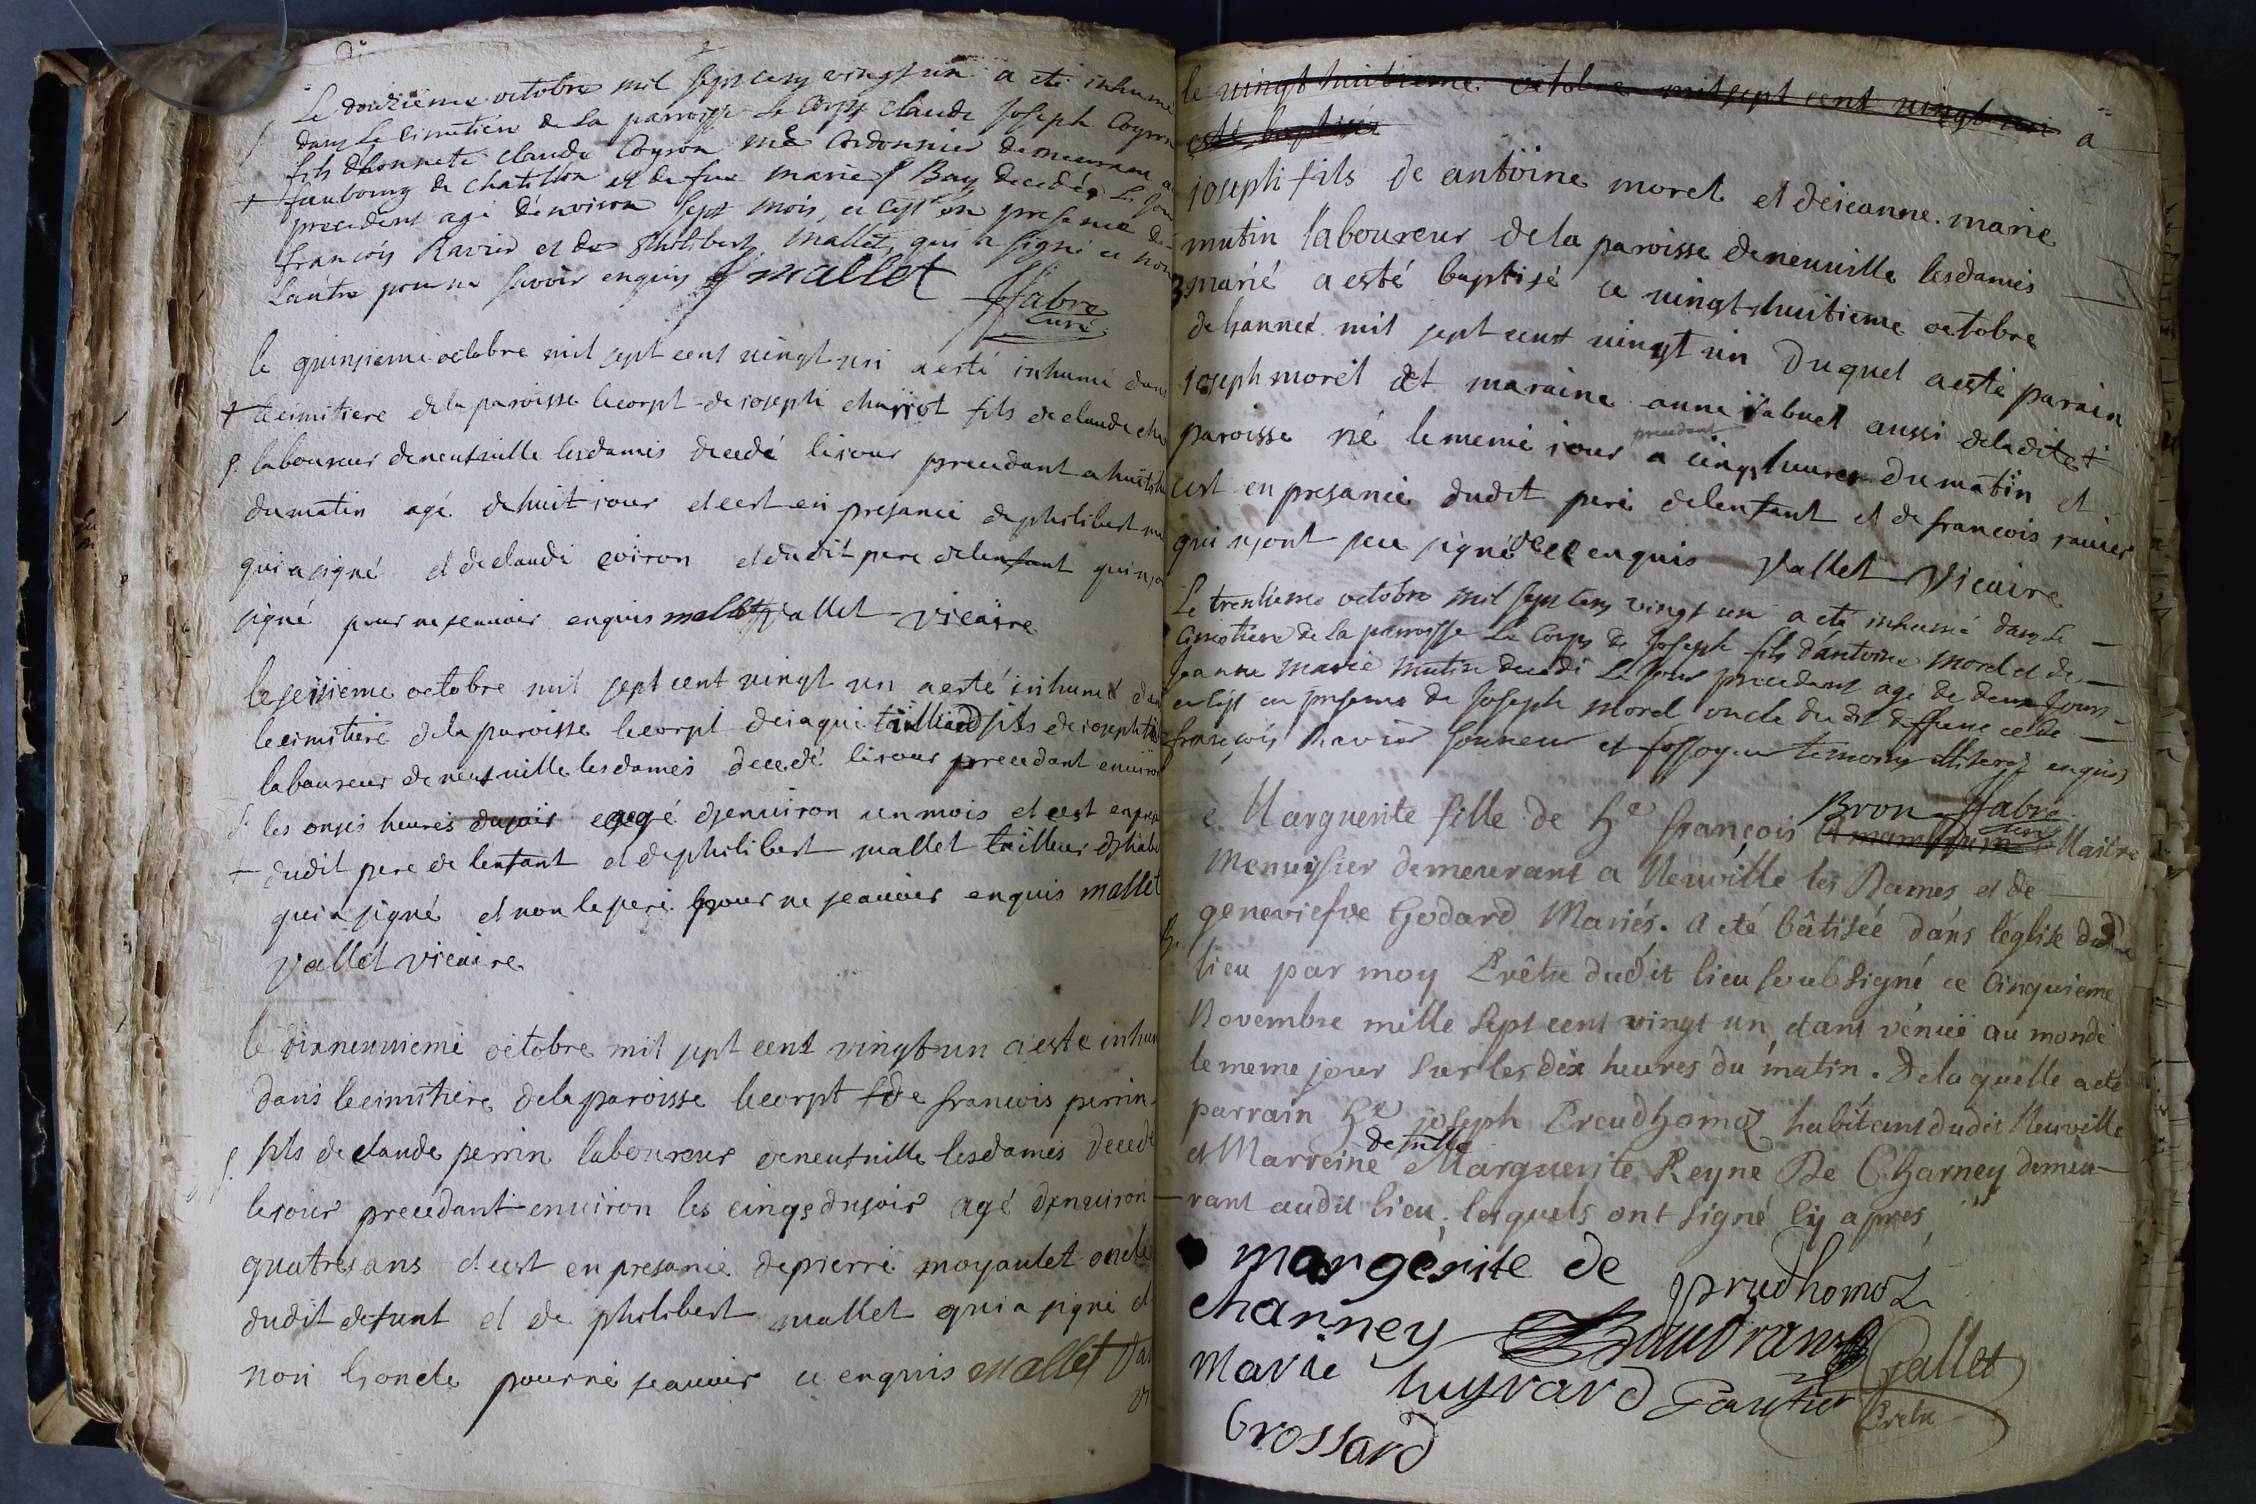 Le douzieme octobre mil sept cens vingt un a eté inhumé
dans Le Cimetiere de La parroisse Le Corps claude Joseph Coyron
fils d'honnete claude Coyron me Cordonnier demeurant a
faubourg de chatillon et de feue marie Bay decedée Le Jour
precedent agé d'environ sept mois, ce en presence de
françois Ravier et de philibert mallet, qui a signé et non
Lautre pour ne savoir enquis mallet
ffabre
curé
le quinsieme octobre mil sept cent vingt un a esté inhumé dans
le cimitiere de la paroisse le corpt de joseph fils de claude
laboureur de neufuille les dames decedé le jour precedant a huit
du matin agé de huit jour et cest en presance de philibert
qui a signé et de claude coiron et dudit pere de lenfant qui
signé pour ne seauoir enquis mallet vallet vicaire
le sesieme octobre mil sept cent vingt un a esté inhumé
le cimitiere de la paroisse le corpt de iaque tailliard fils de joseph
laboureur de neufuille les dames decedé le jour precedant enuiron
les onses heures du soir agé denuiron un mois et cest en
dudit pere de lenfant et de philibert mallet tailleur
qui a signé et non le pere pour ne seauoir enquis mallet
vallet vicaire
le dixneuuieme octobre mil sept cent vingt un a esté
dans le cimitiere de la paroisse le corpt de francois perrin
fils de claude perrin laboureur de neufuille les dames decedé
le jour precedant enuiron les cinqs du soir agé denuiron
quatres ans et cest en presance de pierre moyaulet oncle
dudit defunt et de philibert mallet qui a signé et
non loncle pour ne seauoir ce enquis mallet
le vingt huitieme octobre mil sept cent vingt un a
esté baptisé
joseph fils de antoine morel et de jeanne marie
mutin laboureur de la paroisse de neuuille les dames
marié a esté baptisé ce vingt huitieme octobre
mil sept cent vingt un duquel a esté parain
joseph morel et maraine anne aussi de ladite
precedant
paroisse né le meme jour a cinqs heures du matin et
cest en presance dudit pere de lenfant et de francois rauier
qui nont seu signé de ce enquis vallet vicaire
Le trentieme octobre mil sept cens vingt un a eté inhumé dans Le
Cimetiere de La parroisse Le Corps de Joseph fils d'antoine morel et de
Jeanne marie mutin decedé Le Jour precedent agé de deux Jours
en presence de Joseph morel oncle du dit deffunt et de
françois Ravier sonneur et fossoyeur temoins enquis
ffabre
curé
Bron
Marguerite fille de he françois Maitre
Menuysier demeurant a Neuville les Dames et de
geneviefve Godard Mariés. a eté bâtisée dans l'église dudit
lieu par moy Prêtre dudit lieu soubsigné ce Cinquieme
Novembre mille Sept cent vingt un, etant venüe au monde
le meme jour sur les dix heures du matin. De laquelle a eté
parrain he joseph Preudhomos habitant dudit Neuville
de mlle
et Marreine Marguerite Reyne De Charney demeu-
rant audit lieu, lesquels ont signé cy apres
margérite de
charney prudhomos
Baudrand
Marie huyrard Gautier vallet
Prêtre
Grossard